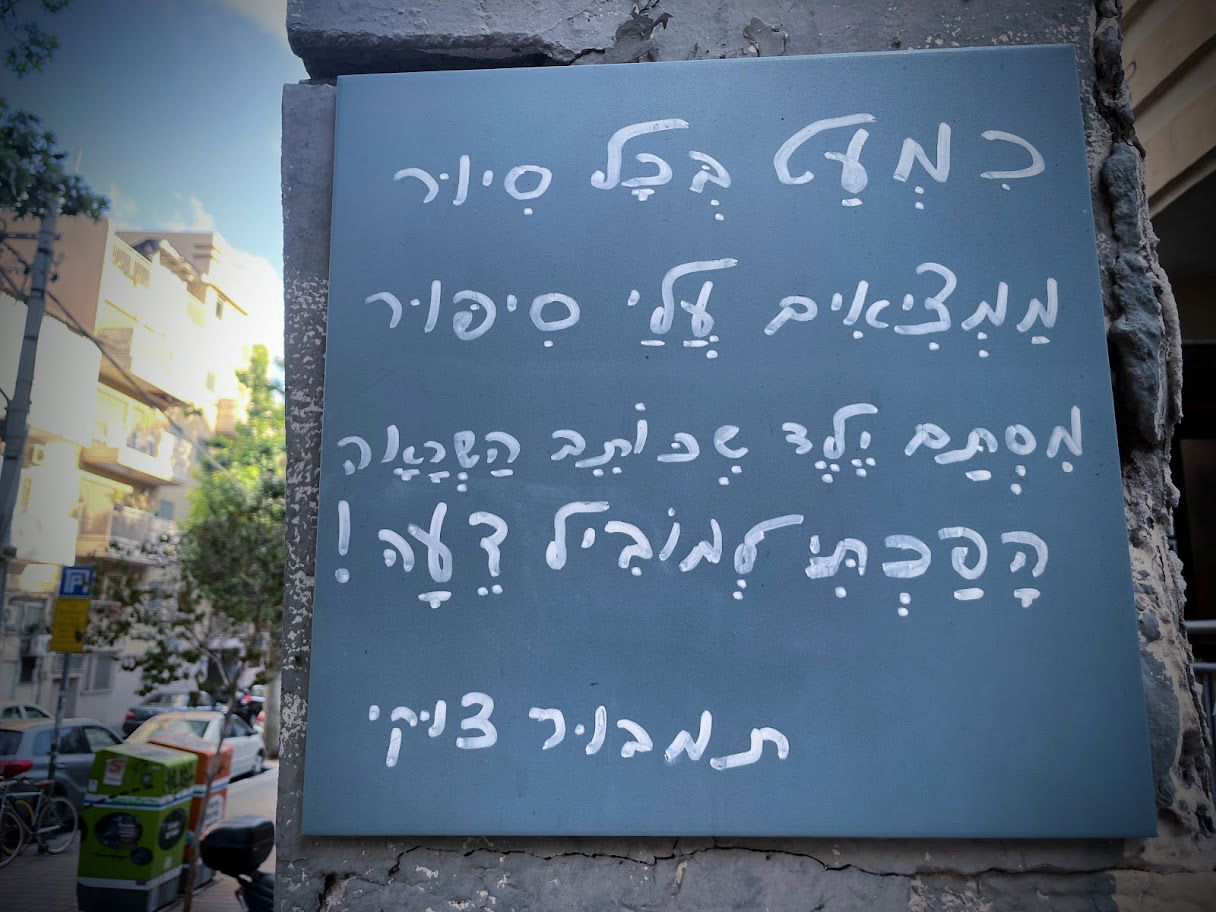 כִמְעַט בְּכָל סִיוּר
מַמְצִיאִים עָלַי סִיפּוּר
מִסְתַּם יֶלֶד שֶכּוֹתֵב הַשְרָאָה
הָפַכְתִּי לְמוֹבִיל דֵעָה!
תמבוּר צוּקי
P